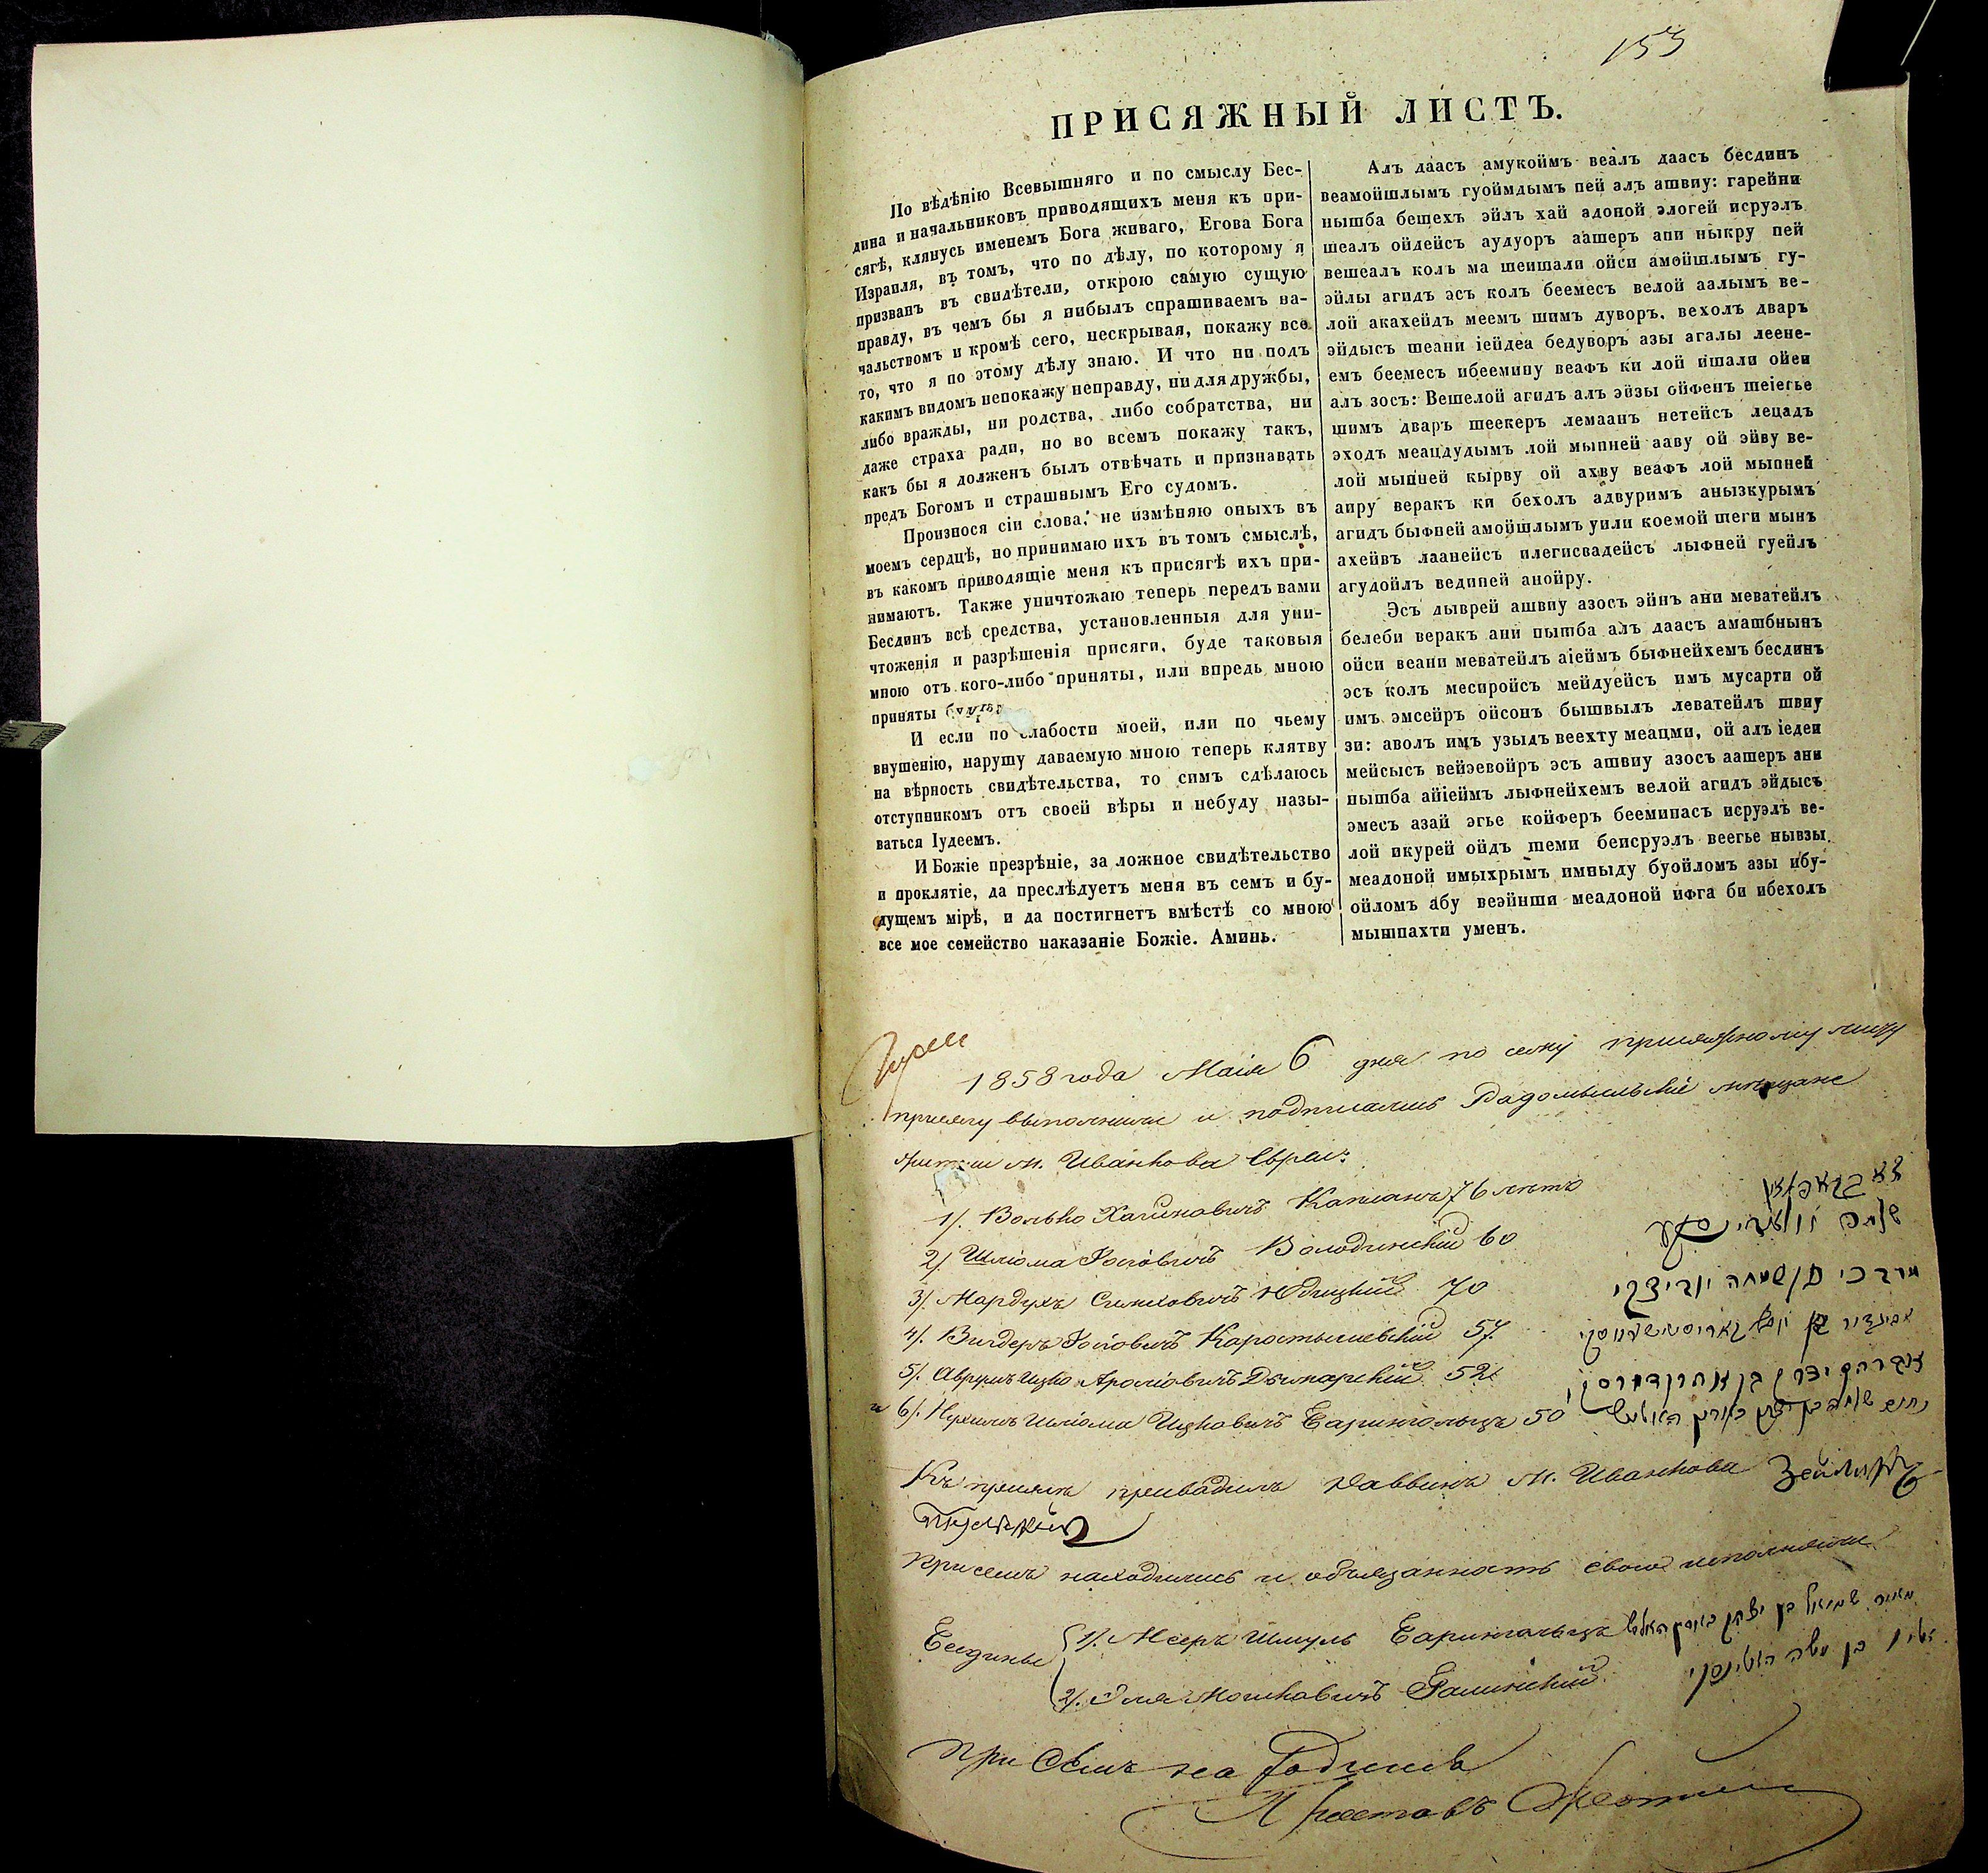 153
ПРИСЯЖНЫЙ ЛИСТЪ.
По вѣдѣнію Всевышняго и по смыслу Бес-
дина и начальниковъ приводящихъ меня къ при-
сягѣ, клянусь именемъ Бога живаго, Егова Бога
Израиля, въ томъ, что по дѣлу, по которому я
призванъ въ свидѣтели, открою самую сущую
правду, въ чемъ бы я нибылъ спрашиваемъ на-
чальствомъ и кромѣ сего, нескрывая, покажу все
то, что я по этому дѣлу знаю. И что ни подъ
какимъ видомъ непокажу неправду, ни для дружбы,
либо вражды, ни родства, либо собратства, ни
даже страха ради, но во всемъ покажу такъ,
какъ бы я долженъ былъ отвѣчать и признавать
предъ Богомъ и страшнымъ Его судомъ.
Произнося сіи слова, не измѣняю оныхъ въ
моемъ сердцѣ, но принимаю ихъ въ томъ смыслѣ,
въ какомъ приводящіе меня къ присягѣ ихъ при-
нимаютъ. Также уничтожаю теперь передъ вами
Бесдинъ всѣ средства, установленныя для уни-
чтоженія и разрѣшенія присяги, буде таковыя
мною отъ кого-либо приняты, или впредь мною
приняты
И если по слабости моей, или по чьему
внушенію, нарушу даваемую мною теперь клятву
на вѣрность свидѣтельства, то симъ сдѣлаюсь
отступникомъ отъ своей вѣры и небуду назы-
ваться Іудеемъ.
И Божіе презрѣніе, за ложное свидѣтельство
и проклятіе, да преслѣдуетъ меня въ семъ и бу-
дущемъ мірѣ, и да постигнетъ вмѣстѣ со мною
все мое семейство наказаніе Божіе. Аминь.
Алъ даасъ амукоймъ веалъ даасъ бесдинъ
веамойшлымъ гуоймдымъ пей алъ ашвиу: гарейни
нышба бешехъ эйлъ хай адоной элогей исруэлъ
шеалъ ойдейсъ аудуоръ аашеръ апи ныкру пей
вешеалъ колъ ма шеишали ойси амойшлымъ гу-
эйлы агидъ эсъ колъ беемесъ велой аалымъ ве-
лой акахейдъ меемъ шимъ дуворъ, вехолъ дваръ
эйдысъ шеани іейдеа бедуворъ азы агалы леене-
емъ беемесъ ибеемину веафъ ки лой ишали ойси
алъ зосъ: Вешелой агидъ алъ эйзы ойфенъ шеіегье
шимъ дваръ шеекеръ лемаанъ нетейсъ лецадъ
эходъ меацдудымъ лой мыпней ааву ой эйву ве-
лой мыпней кырву ой ахву веафъ лой мыпней
аиру веракъ ки бехолъ адвуримъ анызкурымъ
агидъ быфней амойшлымъ уили коемой шеги мынъ
ахейвъ лаанейсъ илегисвадейсъ лыфней гуейлъ
агудойлъ ведипей анойру.
Эсъ дыврей ашвиу азосъ эйнъ ани меватейлъ
белеби веракъ ани нышба алъ даасъ амашбнынъ
ойси веани меватейлъ аіеймъ быфнейхемъ бесдинъ
эсъ колъ месиройсъ мейдуейсъ имъ мусарти ой
имъ эмсейръ ойсонъ бышвылъ леватейлъ швиу
зи: аволъ имъ узыдъ веехту меацми, ой алъ іедеи
мейсысъ вейэевойръ эсъ ашвиу азосъ аашеръ ани
нышба айіеймъ лыфнейхемъ велой агидъ эйдысъ
эмесъ азай эгье койферъ бееминасъ исруэлъ ве-
лой икурей ойдъ шеми беисруэлъ веегье нывзы
меадоной имыхрымъ имныду буойломъ азы ибу-
ойломъ абу веэйнши меадоной ифга би ибехолъ
мышпахти уменъ.
1858 года Маія 6 дня по сему присяжному листу
присягу выполнили и подписались Радомысльскіе мѣщане
жители м. Иванкова Евреи:
1). Волько Хаимовичъ Капланъ 76 лѣтъ
2). Шлiома Іосіовичъ Володинскій 60
3). Мардухъ Симховичъ Юдицкій 70
מרדכי בן שמחה יודיצקי
4). Вигдеръ Іосіовичъ Каростышевскій 57
5). Аврумъ Ицко Ароніовичъ Дымарскій 52
и 6). Нухимъ Шлiома Ицковичъ Баринголцъ 50
Къ присягѣ приводилъ Раввинъ м. Иванкова
При семъ находились и обязанность свою исполняли
Бесдины
1). Мееръ Шмуль Баринголцъ
2). Эля Мошковичъ Галинскій
При семъ находился
Приставъ